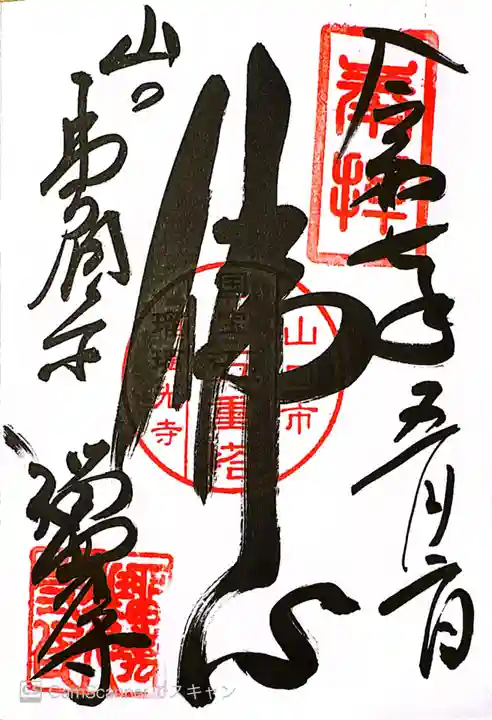 奉拝
令和七年五月二日
佛心
山口市
国宝五重塔
瑠璃光寺
山口
CamScannerでスキャン